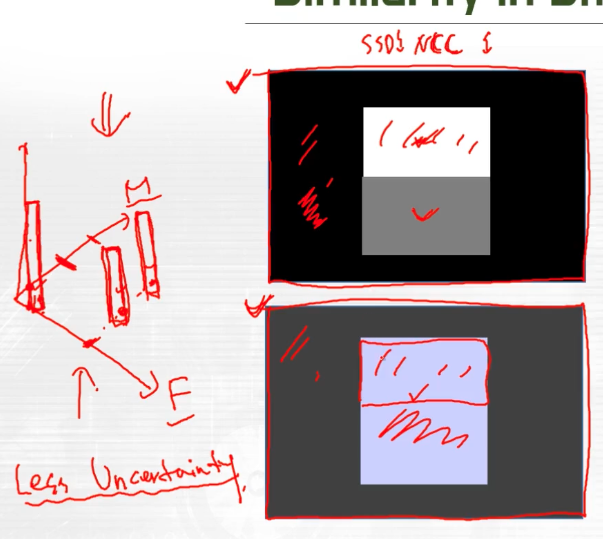 Similarity in
SSD↓ NCC ↓
M
F
Less Uncertainty.